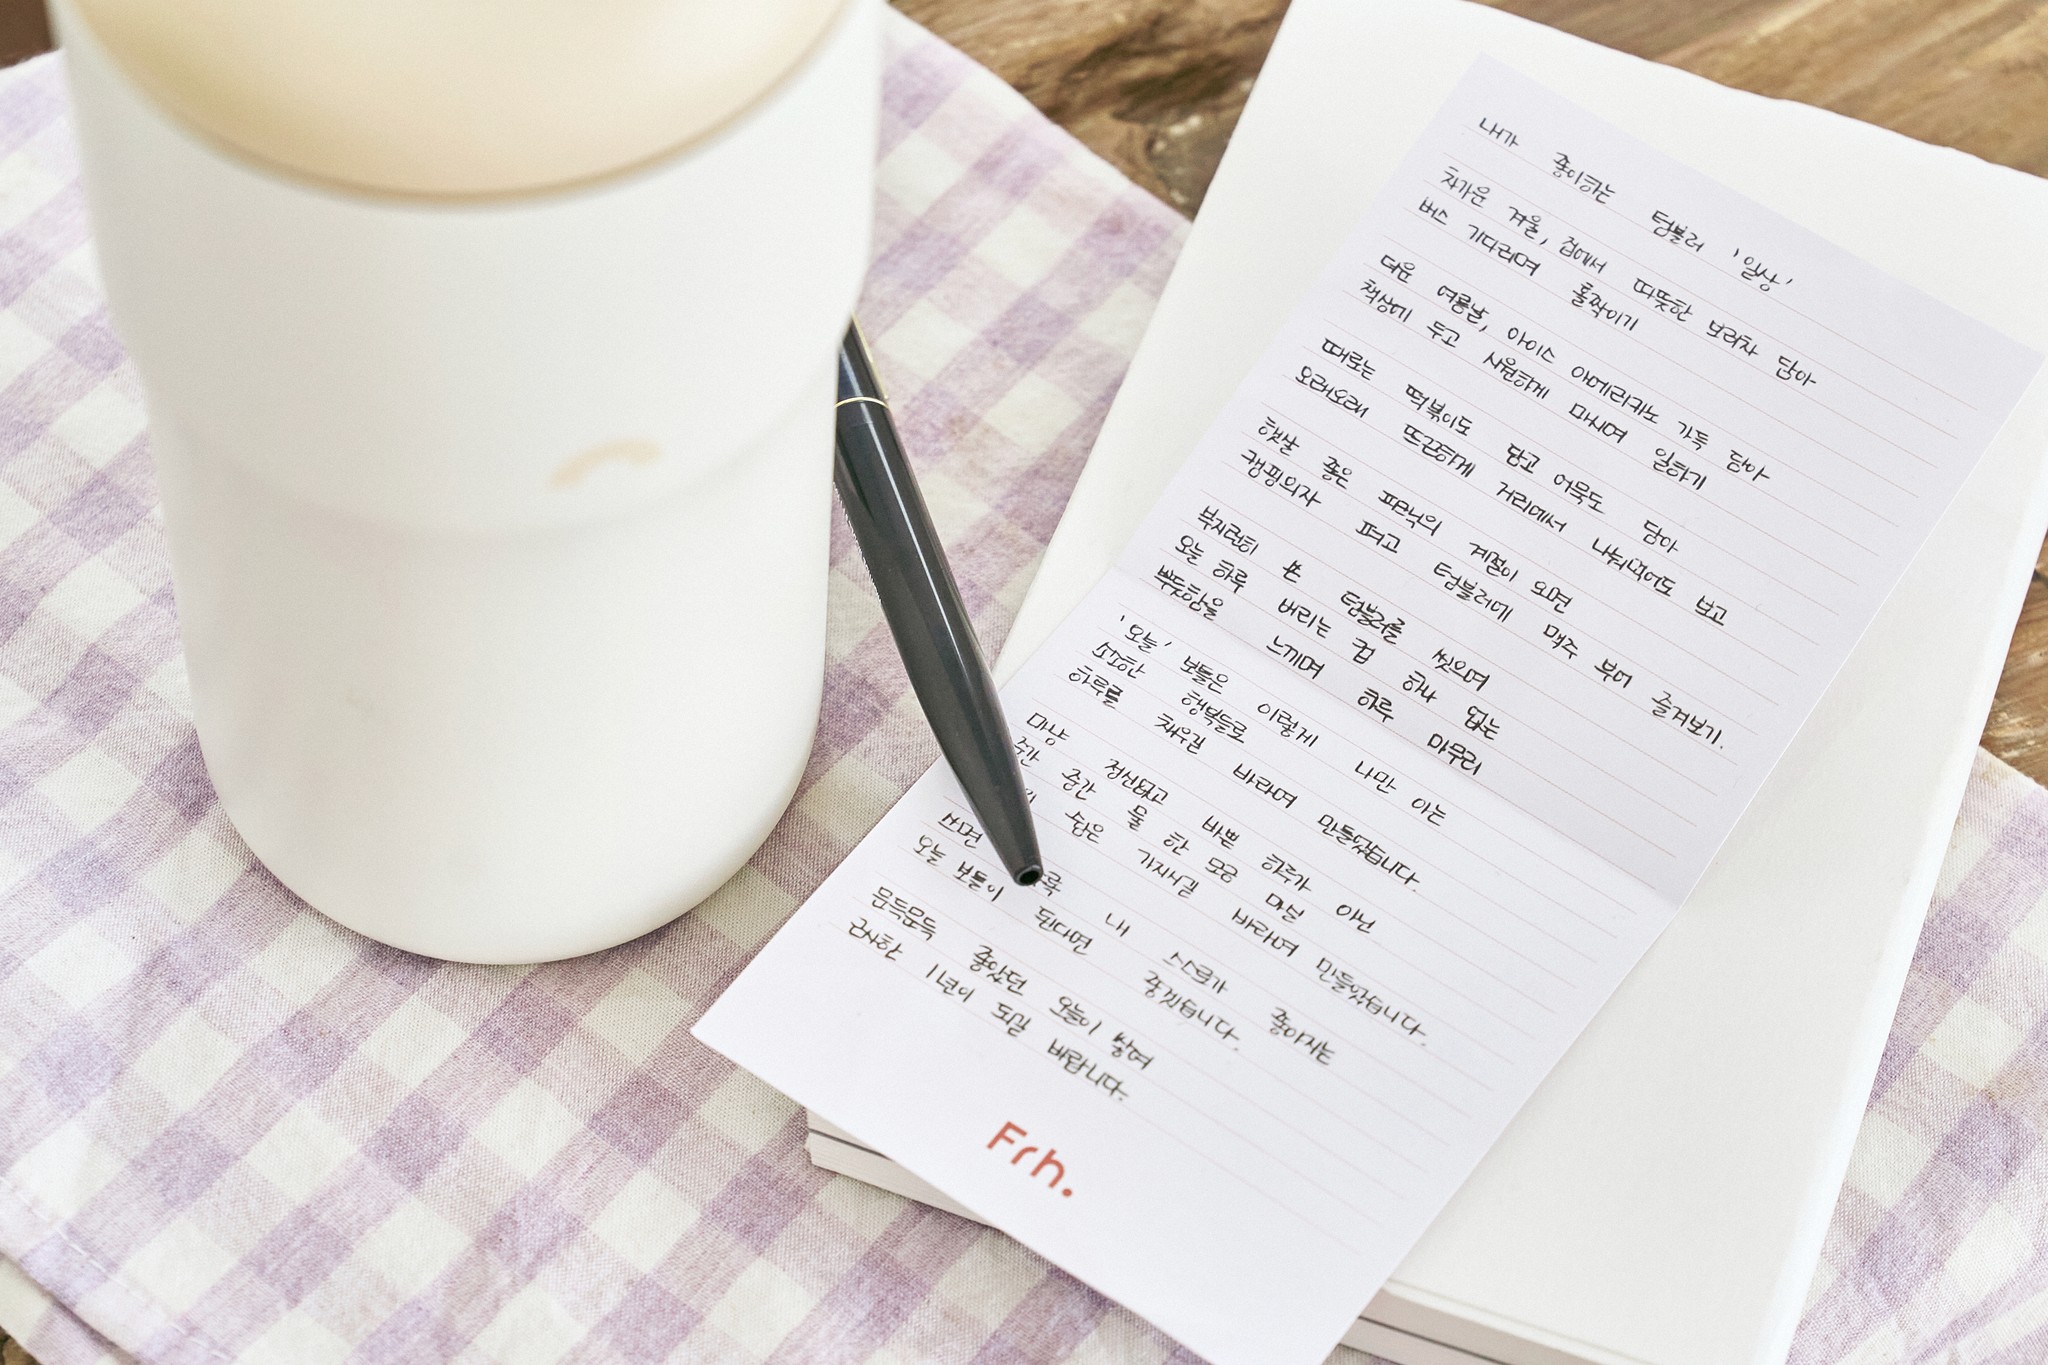 내가 좋아하는 텀블러 '일상'
차가운 겨울, 집에서 따뜻한 보리차 담아
버스 기다리며 홀짝이기
더운 여름날, 아이스 아메리카노 가득 담아
책상에 두고 시원하게 마시며 일하기
때로는 떡볶이도 담고 어묵도 담아
오래오래 뜨끈하게 거리에서 나눠먹어도 보고
햇살 좋은 피크닉의 계절이 오면
캠핑의자 펴고 텀블러에 맥주 부어 즐겨보기.
부지런히 쓴 텀블러를 씻으며
오늘 하루 버리는 컵 하나 없는
뿌듯함을 느끼며 하루 마무리
'오늘' 보틀은 이렇게 나만 아는
소소한 행복들로
하루를 채우길 바라며 만들었습니다.
마냥 정신없고 바쁜 하루가 아닌
중간 물 한 모금 마신
숨은 가지시길 바라며 만들었습니다.
쓰면 내 스스로가 좋아지는
오늘 보틀이 된다면 좋겠습니다.
문득문득 좋았던 오늘이 쌓여
근사한 1년이 되길 바랍니다.
Frh.